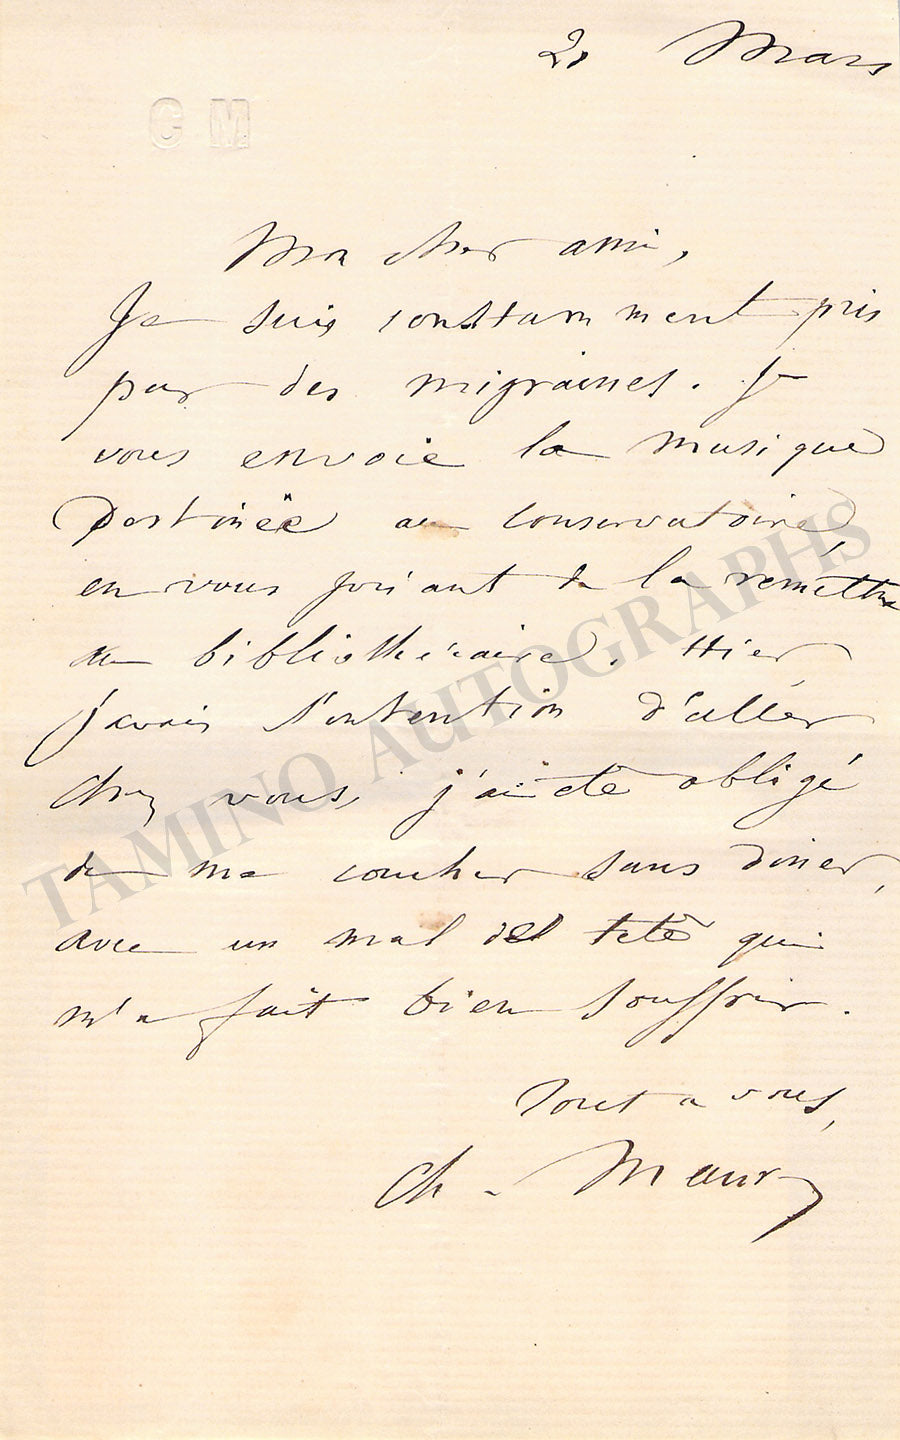 2 Mars
C M
Mon cher ami,
Je suis constamment pris
par des migraines. Je
vous envoie la musique
destinée au conservatoire,
en vous priant de la remettre
au bibliothécaire. Hier
j'avais l'intention d'aller
chez vous, j'ai été obligé
de me coucher sans diner,
avec un mal de tete qui
m'a fait bien souffrir.
Tout a vous,
Ch. Maury
TAMINO AUTOGRAPHS